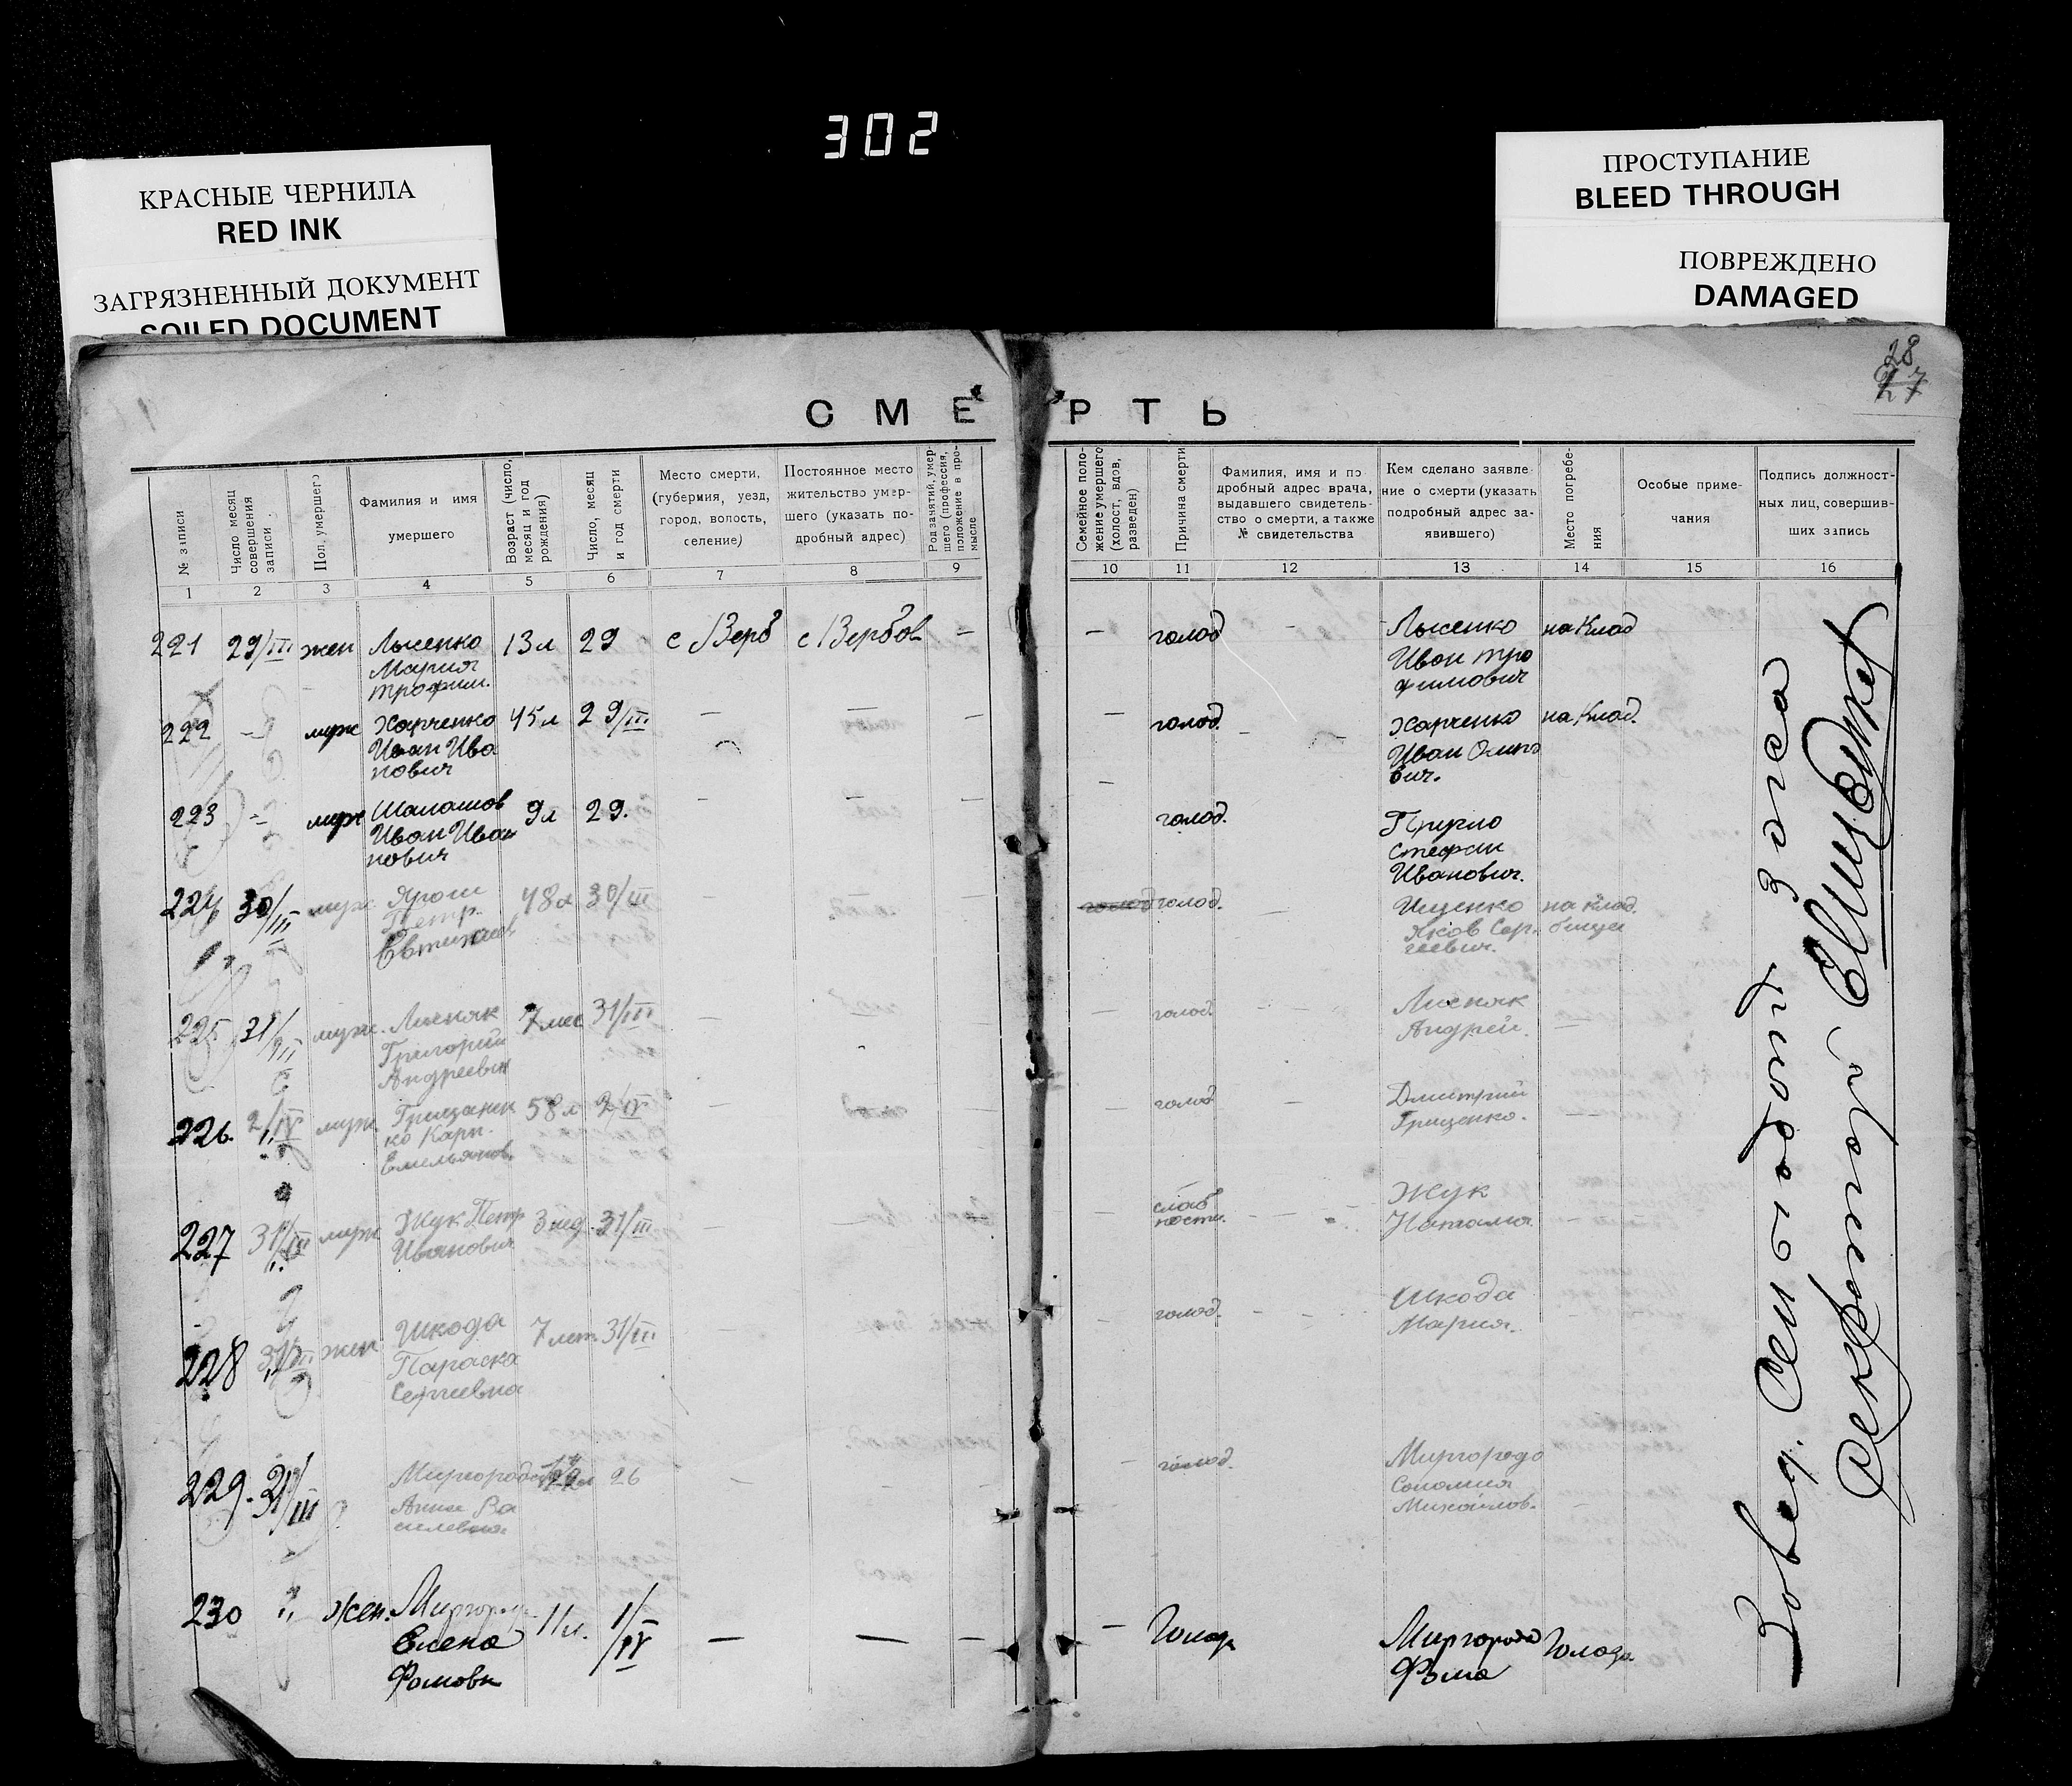 302
КРАСНЫЕ ЧЕРНИЛА
RED INK
ЗАГРЯЗНЕННЫЙ ДОКУМЕНТ
SOILED DOCUMENT
ПРОСТУПАНИЕ
BLEED THROUGH
ПОВРЕЖДЕНО
DAMAGED
28
27
СМЕРТЬ
№ записи
Число месяц совершения записи
Пол. умершего
Фамилия и имя умершего
Возраст (число, месяц и год рождения)
Число, месяц и год смерти
Место смерти, (губерния, уезд, город, волость, селение)
Постоянное место жительство умершего (указать подробный адрес)
Род занятий, умершего (профессия, положение в промысле
Семейное положение умершего (холост, вдов, разведен)
Причина смерти
Фамилия, имя и подробный адрес врача, выдавшего свидетельство о смерти, а также № свидетельства
Кем сделано заявление о смерти (указать подробный адрес заявившего)
Место погребения
Особые примечания
Подпись должностных лиц, совершивших запись
1 2 3 4 5 6 7 8 9 10 11 12 13 14 15 16
221 29/III жен Лысенко 13л 29 с Верб с Вербов — — голод — Лысенко на Клад
Мария Иван Тро
Трофим. фимович
222 муж Харченко 45л 29/III — — — — голод. — Харченко на Клад.
Иван Ива Иван
нович вич.
223 муж Шалашов 9л 29. — — — — голод.
Иван Иван Стефан
нович Иванович.
224 30/III муж Ярош 48л 30/III — — — голод. — Ищенко на клад.
Петр. Яков Сер- бище
геевич.
225 31/III муж. Лисняк 7 мес 31/III — — голод. — — Лисняк
Григорий Андрей. —
Андреевич
226. 2/IV муж 58л 2/IV — — — голод — Дмитрий
ко Карп. Грищенко. —
Емельянов.
227 31/III муж Жук Петр 3 нед. 31/III — — — — слаб — — Жук
Иванович ности. Наталия. —
228 31/III жен Шкода 7 лет 31/III — — — голод. — — Шкода
Параска Мария.
Сергиевна
229. 31/III 26 — — — — голод. Миргород
Анна Ва Соломия
силевна Михайлов. —
230 жен. Миргород 11л. 1/IV — — — — Голод Миргород Голод
Елена Фома
Фомовн
Завед. Секретарь